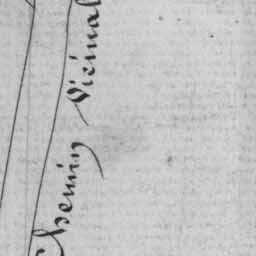 Chemin Vicinal